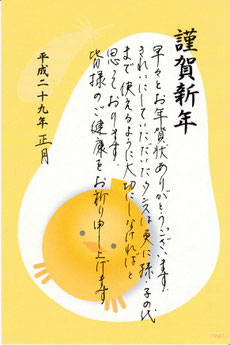 謹賀新年
早々とお年賀状ありがとうございます。
きれいにしていただいたタンスは更に孫・子の代
まで使えるように大切にしなければと
思っております。
皆様のご健康をお祈り申し上げます
平成二十九年 正月